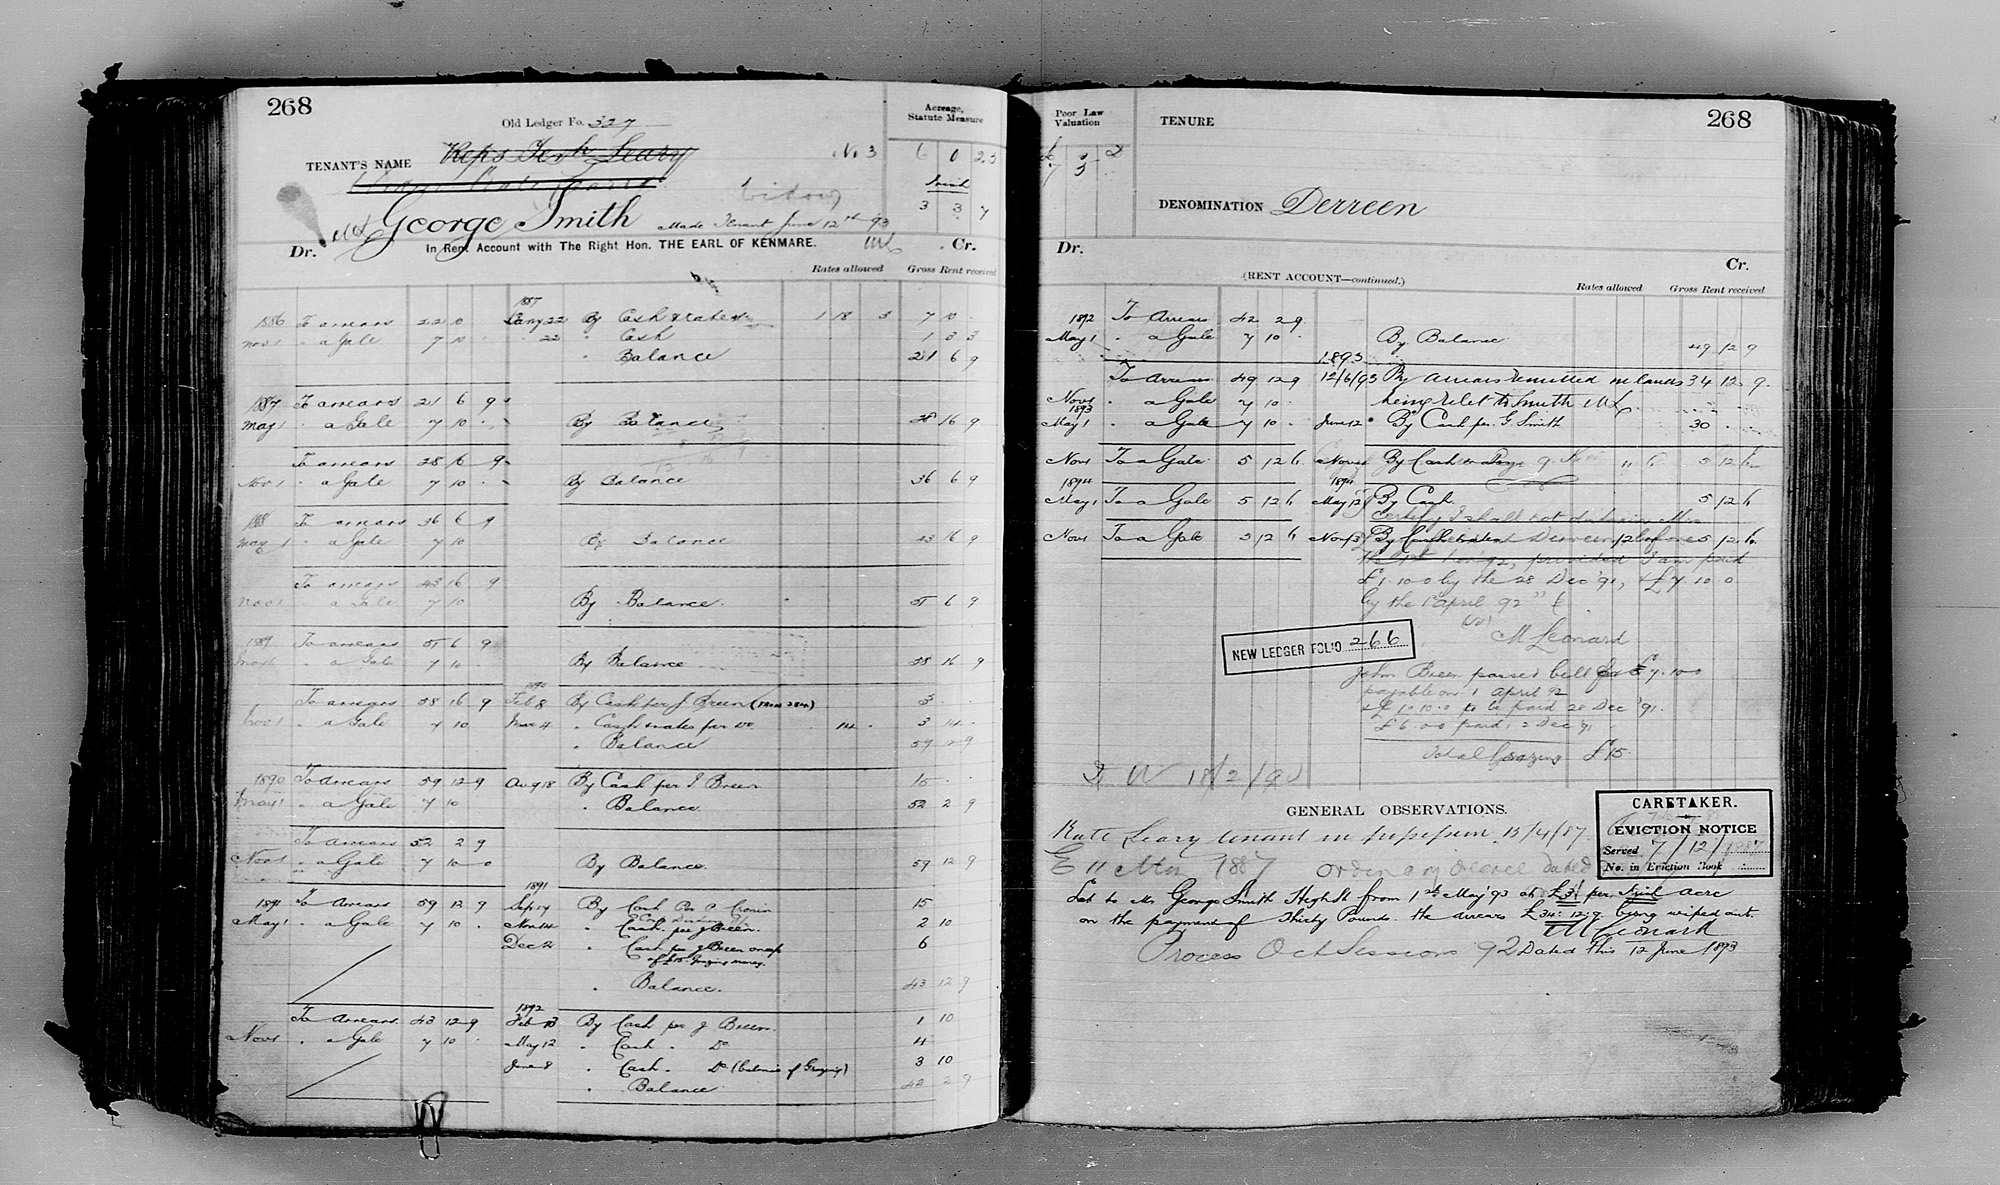 268
Old Ledger Fo. 327
Acreage,
Statute Measure
TENANT'S NAME Reps Jerh Leary No 3 6 0 25
Irish
3 3 7
George Smith Made Tenant June 12th 93
Dr. in Rent Account with The Right Hon. THE EARL OF KENMARE. Cr.
Rates allowed Gross Rent received
1887
1886 To arrears 22 10 Jany 22 By Cash & rates 1 18 3 7 10
Nov 1 " a Gale 7 10 " 22 " Cash 1 3 3
" Balance 21 6 9
1887 To arrears 21 6 9
May 1 " a Gale 7 10 By Balance 28 16 9
To arrears 28 16 9
Nov 1 " a Gale 7 10 By Balance 36 6 9
1888 To arrears 36 6 9
May 1 " a Gale 7 10 By Balance 43 16 9
To arrears 43 16 9
Nov 1 " a Gale 7 10 By Balance 51 6 9
1889 To arrears 51 6 9
May 1 " a Gale 7 10 By Balance 58 16 9
1890
To arrears 58 16 9 Feb 8 By Cash per J Breen 3
Nov 1 " a Gale 7 10 Mar 4 " Cash & rates per Do 14 3 14
" Balance 59 12 9
1890 To arrears 59 12 9 Aug 18 By Cash per J Breen 15
May 1 " a Gale 7 10 " Balance 52 2 9
To arrears 52 2 9
Nov 1 " a Gale 7 10 0 By Balance 59 12 9
1891
1891 To Arrears 59 12 9 Sep 17 By Cash Per P Cronin 15
May 1 " a Gale 7 10 Nov 14 " Cash per J Breen 2 10
Dec 2 " Cash per J Breen on a/c 6
of £15 Grazing money.
" Balance. 43 12 9
1892
To Arrears 43 12 9 Feb 13 By Cash per J Breen. 1 10
Nov 1 " a Gale 7 10 May 12 " Cash " Do 4
June 8 " Cash " Do (balance of Grazing) 3 10
" Balance 42 2 9
Poor Law
Valuation
TENURE
268
DENOMINATION Derreen
Dr. Cr.
(RENT ACCOUNT—continued.)
Rates allowed Gross Rent received
1892 To Arrears 42 2 9
May 1 " a Gale 7 10 By Balance 49 12 9
1893
To Arrears 49 12 9 12/6/93 By arrears remitted on lands 34 12 9
Nov 1 " a Gale 7 10 being relet to Smith ML
1893
May 1 " a Gale 7 10 June 12 " By Cash per G Smith 30
Nov 1 To a Gale 5 12 6 5 12 6
1894 1894
May 1 To a Gale 5 12 6 May 12 By Cash 5 12 6
I shall not
Nov 1 To a Gale 5 12 6 Nov 13 Derreen before 5 12 6
92, provided I am paid
£1.10.0 by the 28 Dec '91, & £7.10.0
by the 1 April 92"
M Leonard
NEW LEDGER FOLIO 266
John Breen passed bill for £7.10.0
payable on 1 April 92
& £1.10.0 to be paid 28 Dec '91.
£6.0.0 paid, 2 Dec 91
Total Grazing £15
GENERAL OBSERVATIONS.
CARETAKER.
EVICTION NOTICE
Served 7/12/1887
No. in Eviction Book
Kate Leary tenant in possession 13/4/87
E 11 Mar 1887 Ordinary decree Dated
Let to Mr George Smith High St from 1st May '93 at £3 per Irish acre
on the payment of Thirty Pounds. the arrears £34:12:9 being wiped out.
M Leonard
Process Oct Sessions 92 Dated this 12 June 1893